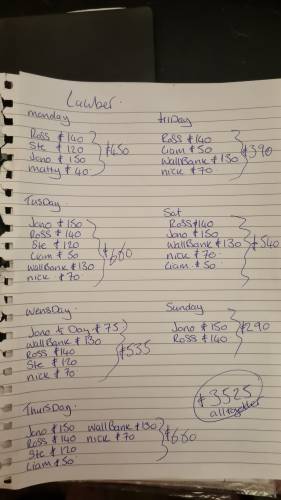 Lawber.
monday
Ross £140
Ste £120
Jono £150
matty £40
£450
TusDay
Jono £150
Ross £140
Ste £120
Liam £50
WallBank £130
nick £70
£660
WensDay
Jono ½ Day £75
WallBank £130
Ross £140
Ste £120
nick £70
£535
ThursDay
Jono £150 WallBank £130
Ross £140 nick £70
Ste £120
Liam £50
£660
friDay
Ross £140
Liam £50
WallBank £130
nick £70
£390
Sat
Ross £140
Jono £150
WallBank £130
nick £70
Liam £50
£540
Sunday
Jono £150
Ross £140
£290
£3525
alltogether